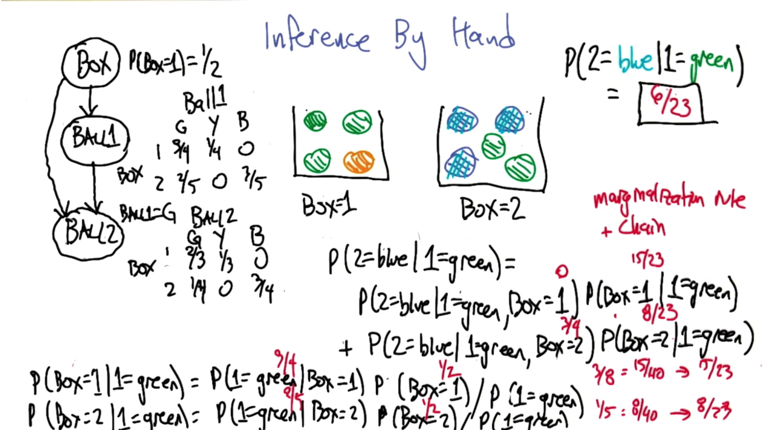 Inference By Hand
BOX P(Box=1)=1/2
P(2=blue|1=green)
= 6/23
Ball1
G Y B
BALL1
1 3/4 1/4 0
BOX 2 2/5 0 3/5
BALL1=G BALL2
BALL2
G Y B
BOX 1 2/3 1/3 0
2 1/4 0 3/4
BOX=1
BOX=2
marginalization rule
+ chain
P(2=blue|1=green)=
15/23
0
P(2=blue|1=green, Box=1) P(Box=1|1=green)
3/4 8/23
+ P(2=blue|1=green, Box=2) P(Box=2|1=green)
3/8 = 15/40 → 15/23
1/5 = 8/40 → 8/23
3/4 1/2
P(Box=1|1=green) = P(1=green|Box=1) P(Box=1)/P(1=green)
2/5 1/2
P(Box=2|1=green) = P(1=green|Box=2) P(Box=2)/P(1=green)